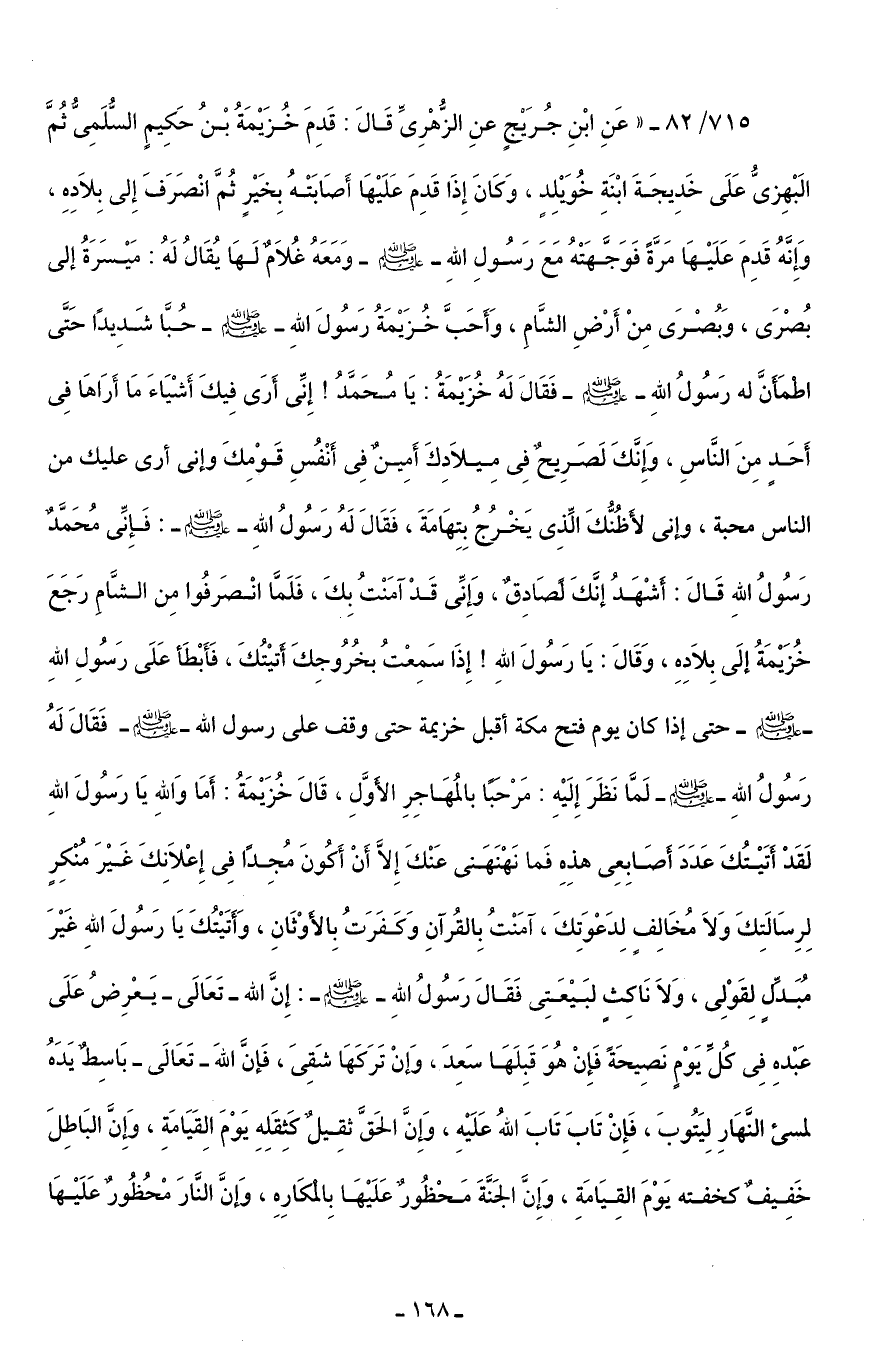 ٧١٥/ ٨٢ ـ « عَنِ ابْنِ جُرَيْجٍ عنِ الزُّهْرِىِّ قَالَ : قَدِمَ خُزَيْمَةُ بْنُ حَكِيمٍ السُّلَمِىُّ ثُمَّ
الْبَهْزِىُّ عَلَى خَدِيجَةَ ابْنَةِ خُوَيْلِدٍ ، وَكَانَ إِذَا قَدِمَ عَلَيْهَا أَصَابَتْهُ بِخَيْرٍ ثُمَّ انْصَرَفَ إِلى بِلاَدِهِ ،
وَإِنَّهُ قَدِمَ عَلَيْهَا مَرَّةً فَوَجَّهَتْهُ مَعَ رَسُولِ اللهِ ـ ﷺ ـ وَمَعَهُ غُلاَمٌ لَهَا يُقَالُ لَهُ : مَيْسَرَةُ إِلى
بُصْرَى ، وَبُصْرَى مِنْ أَرْضِ الشَّامِ ، وَأَحَبَّ خُزَيْمَةُ رَسُولَ اللهِ ـ ﷺ ـ حُبًّا شَدِيدًا حَتَّى
اطْمَأَنَّ له رَسُولُ اللهِ ـ ﷺ ـ فَقَالَ لَهُ خُزَيْمَةُ : يَا مُحَمَّدُ ! إِنِّى أَرَى فِيكَ أَشْيَاءَ مَا أَرَاهَا فِى
أَحَدٍ مِنَ النَّاسِ ، وَإِنَّكَ لَصَرِيحٌ فِى مِيلاَدِكَ أَمِينٌ فِى أَنْفُسِ قَوْمِكَ وإنى أرى عليك من
الناس محبة ، وإنى لأَظُنُّكَ الَّذِى يَخْرُجُ بِتِهَامَةَ ، فَقَالَ لَهُ رَسُولُ اللهِ ـ ﷺ ـ : فَإِنِّى مُحَمَّدٌ
رَسُولُ اللهِ قَالَ : أَشْهَدُ إِنَّكَ لَصَادِقٌ ، وَإِنِّى قَدْ آمَنْتُ بِكَ ، فَلَمَّا انْصَرَفُوا مِن الشَّامِ رَجَعَ
خُزَيْمَةُ إِلَى بِلاَدِهِ ، وَقَالَ : يَا رَسُولَ اللهِ ! إِذَا سَمِعْتُ بِخُرُوجِكَ أَتَيْتُكَ ، فَأَبْطَأَ عَلَى رَسُولِ اللهِ
ـ ﷺ ـ حتى إذا كان يوم فتح مكة أقبل خزيمة حتى وقف على رسول الله ـ ﷺ ـ فَقَالَ لَهُ
رَسُولُ اللهِ ـ ﷺ ـ لَمَّا نَظَرَ إِلَيْهِ : مَرْحَبًا بِالْمُهَاجِرِ الأَوَّلِ ، قَالَ خُزَيْمَةُ : أَمَا وَاللهِ يَا رَسُولَ اللهِ
لَقَدْ أَتَيْتُكَ عَدَدَ أَصَابِعِى هذِهِ فَما نَهْنَهَنِى عَنْكَ إِلاَّ أَنْ أَكُونَ مُجِدًا فِى إِعْلاَنِكَ غَيْرَ مُنْكِرٍ
لِرِسَالَتِكَ وَلاَ مُخَالِفٍ لِدَعْوَتِكَ ، آمَنْتُ بِالْقُرآنِ وَكَفَرَتُ بِالأَوْثَانِ ، وَأَتَيْتُكَ يَا رَسُولَ اللهِ غَيْرَ
مُبَدِّلٍ لِقَوْلِى ، وَلاَ نَاكِثٍ لِبَيْعَتِى فَقَالَ رَسُولُ اللهِ ـ ﷺ ـ : إِنَّ اللهَ ـ تَعَالَى ـ يَعْرِضُ عَلَى
عَبْدِهِ فِى كُلِّ يَوْمٍ نَصِيحَةً فَإِنْ هُوَ قَبِلَهَا سَعِدَ ، وَإِنْ تَرَكَهَا شَقِىَ ، فَإِنَّ اللهَ ـ تَعَالَى ـ بَاسِطٌ يَدَهُ
لمسئ النَّهَارِ لِيَتُوبَ ، فَإِنْ تَابَ تَابَ اللهُ عَلَيْهِ ، وَإِنَّ الحَقَّ ثَقِيلٌ كَثِقَلِهِ يَوْمَ القِيَامَةِ ، وَإِنَّ البَاطِلَ
خَفِيفٌ كخفته يَوْمَ القِيَامَةِ ، وَإِنَّ الجَنَّةَ مَحْظُورٌ عَلَيْهَا بِالْمَكَارِهِ ، وَإِنَّ النَّارَ مَحْظُورٌ عَلَيْهَا
ـ ١٦٨ ـ